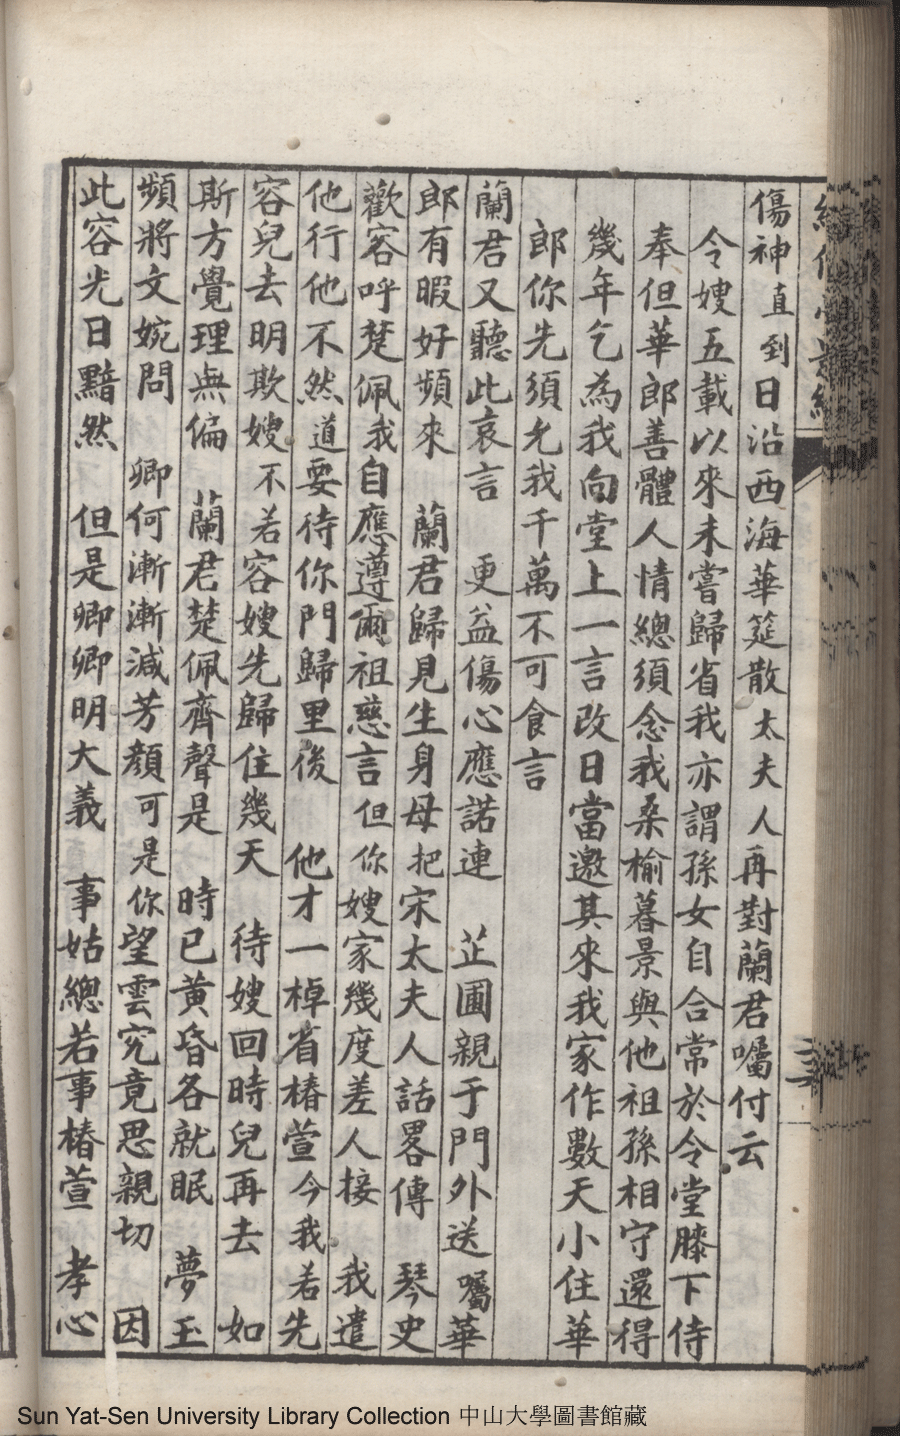 傷神 直到日沿西海華筵散 太夫人再對蘭君囑付云
令嫂五載以來未嘗歸省我亦謂孫女自合常於令堂膝下侍
奉但華郎善體人情總須念我桑榆暮景與他祖孫相守還得
幾年乞為我向堂上一言改日當邀其來我家作數天小住華
郎你先須允我千萬不可食言
蘭君又聽此哀言 更益傷心應諾連 芷圃親于門外送 囑華
郎有暇好頻來 蘭君歸見生身母 把宋太夫人話畧傳 琴史
歡容呼楚佩 我自應遵爾祖慈言 但你嫂家幾度差人接 我遣
他行他不然 道要待你門歸里後 他才一棹省椿萱 今我若先
容兒去 明欺嫂不若容嫂先歸住幾天 待嫂回時兒再去 如
斯方覺理無偏 蘭君楚佩齊聲是 時已黃昏各就眠 夢玉
頻將文婉問 卿何漸漸減芳顏 可是你望雲究竟思親切 因
此容光日黯然 但是卿卿明大義 事姑總若事椿萱 孝心
Sun Yat-Sen University Library Collection 中山大學圖書館藏